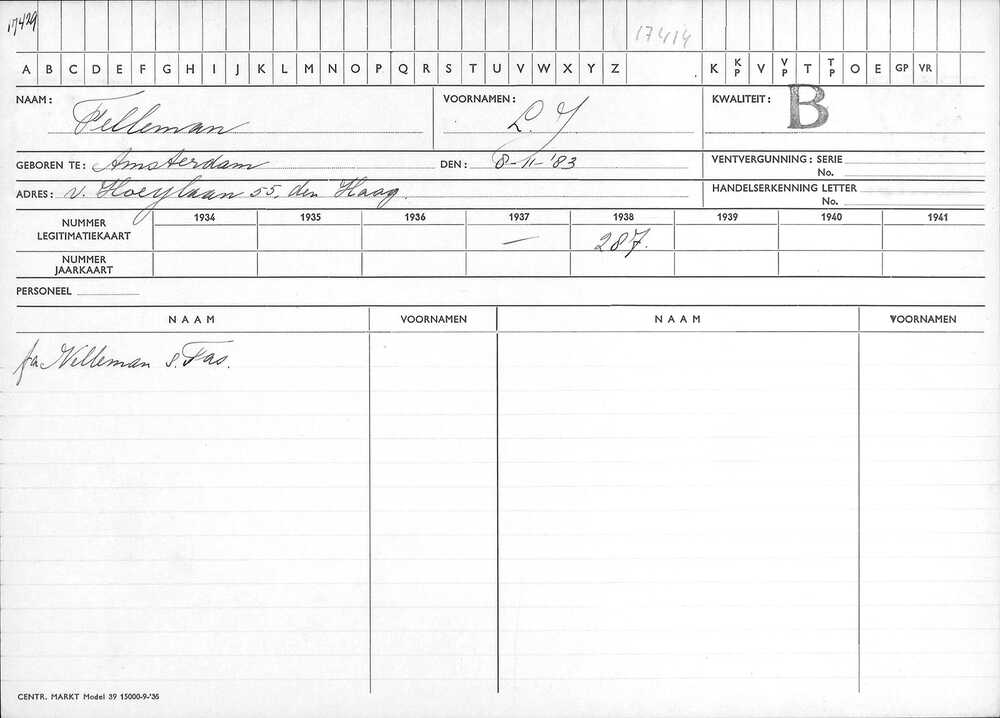 17429
17414
A B C D E F G H I J K L M N O P Q R S T U V W X Y Z K KP V VP T TP O E GP VR
NAAM: Felleman VOORNAMEN: L. J KWALITEIT: B
GEBOREN TE: Amsterdam DEN: 8-11-'83 VENTVERGUNNING: SERIE
No.
ADRES: v. Hoeylaan 55, den Haag. HANDELSERKENNING LETTER
No.
1934 1935 1936 1937 1938 1939 1940 1941
NUMMER LEGITIMATIEKAART — 287.
NUMMER JAARKAART
PERSONEEL
NAAM VOORNAMEN NAAM VOORNAMEN
fa Nelleman s. Fas.
CENTR. MARKT Model 39 15000-9-'36